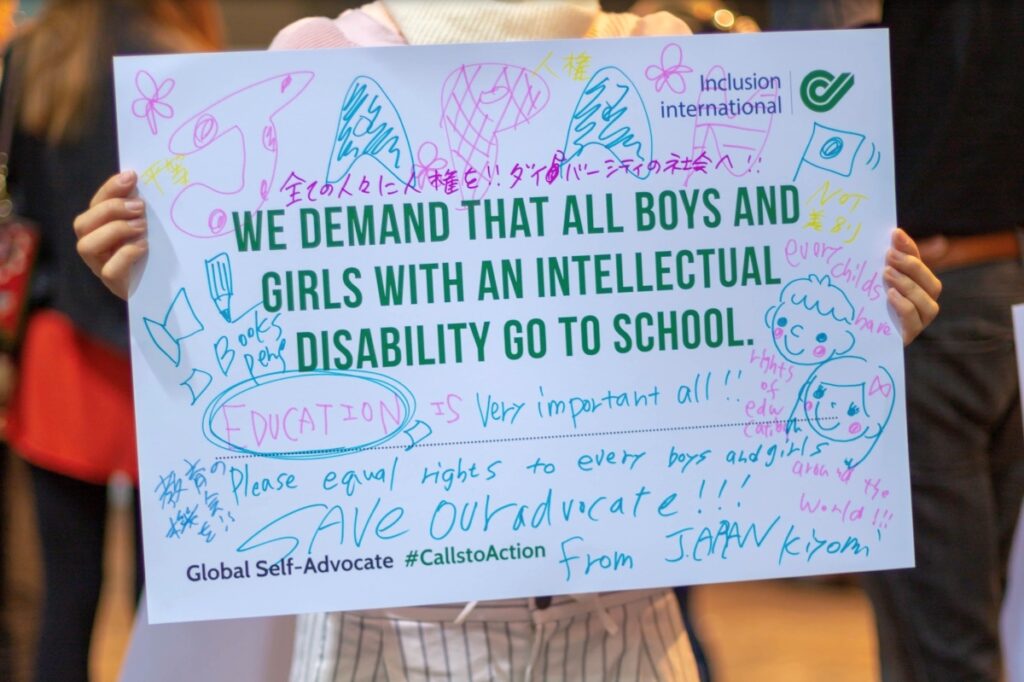 人権
Inclusion
international
JAPAN
平等
全ての人々に人権を!! ダイバーシティの社会へ!!
NOT
差別
WE DEMAND THAT ALL BOYS AND
GIRLS WITH AN INTELLECTUAL
DISABILITY GO TO SCHOOL.
every childs
have
rights
of
edu
cation
around the
world!!!
Books
pens
EDUCATION IS Very important all!!
教育の
機会を!!
Please equal rights to every boys and girls
SAVE our advocate!!!
from JAPAN Kiyomi
Global Self-Advocate #CallstoAction